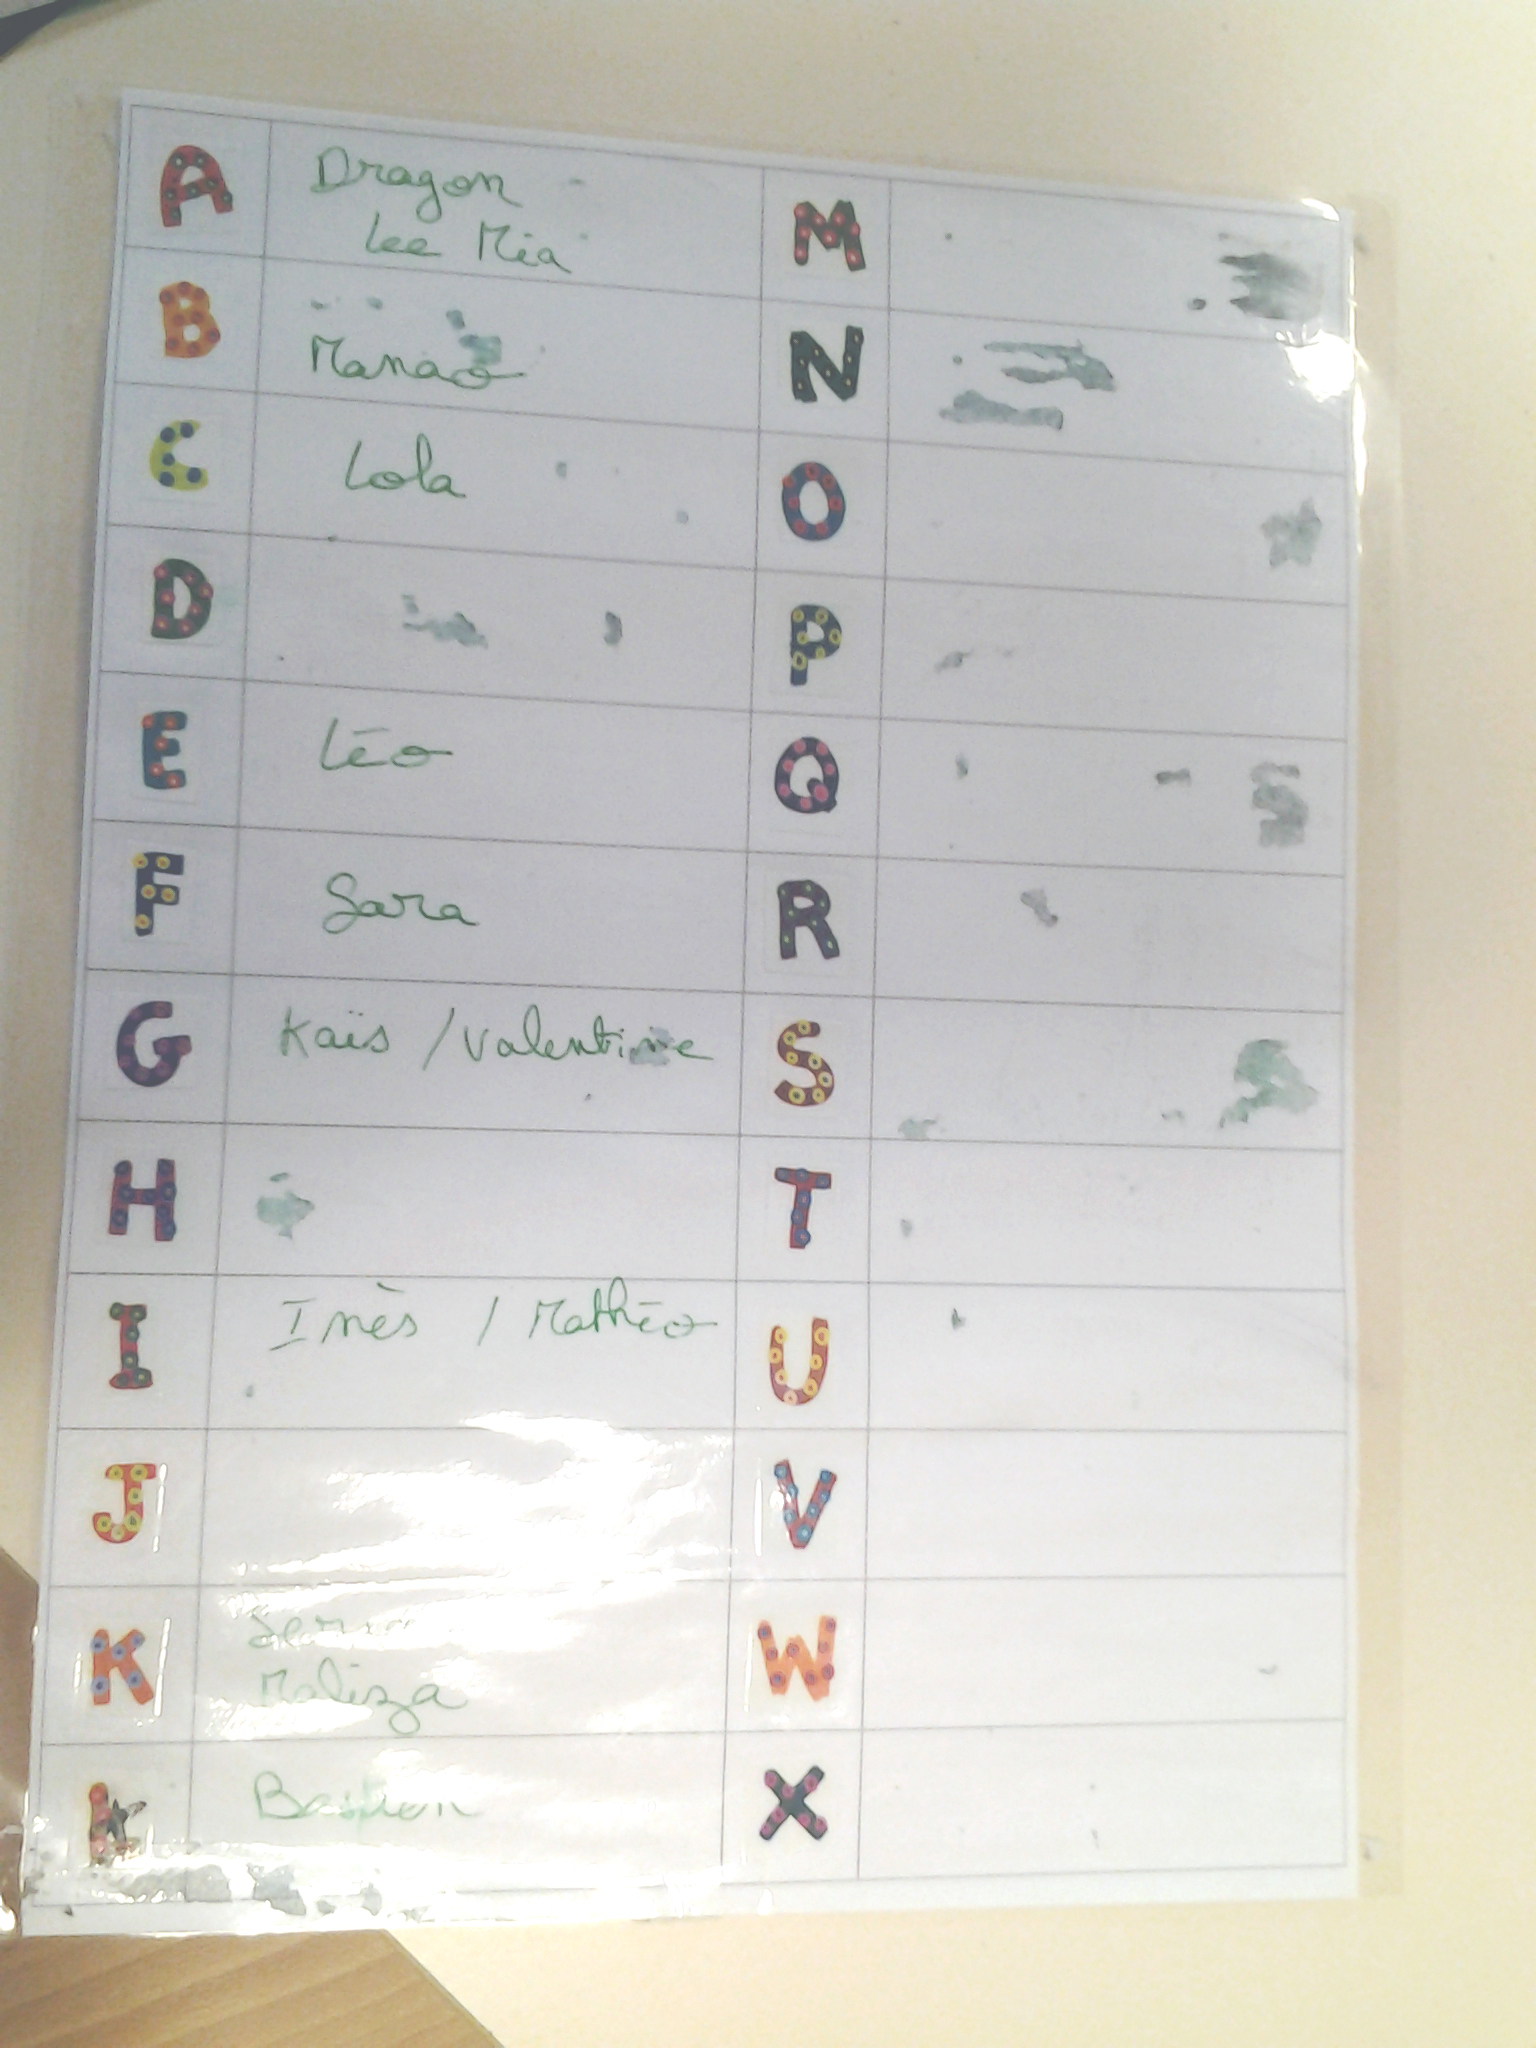 A Dragon
Lee Mia
B Manao
C Lola
D
E Léo
F Sara
G Kaïs / Valentine
H
I Inès / Mathéo
J
K
Maliza
L Bastien
M
N
O
P
Q
R
S
T
U
V
W
X